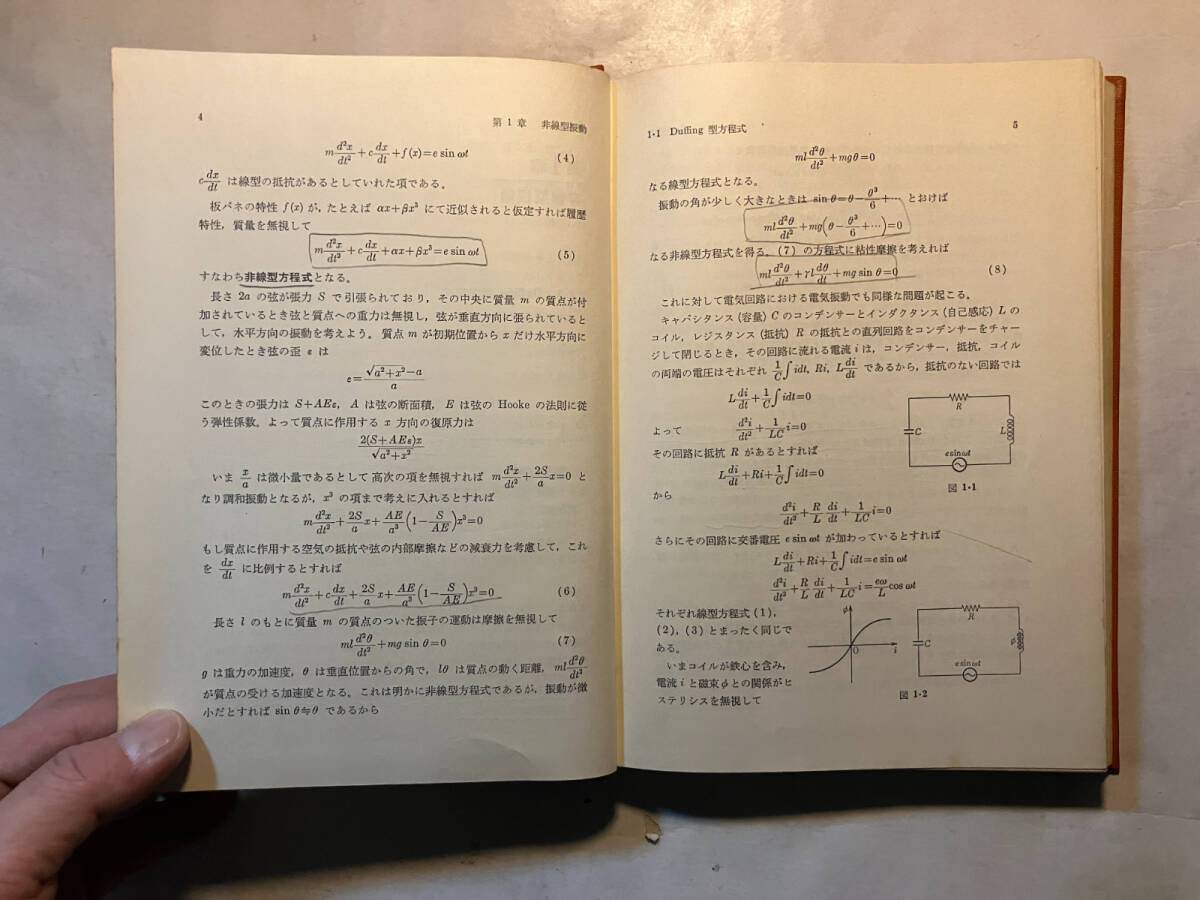 4
第1章 非線型振動
m d²x/dt² + c dx/dt + f(x) = e sin ωt (4)
c dx/dt は線型の抵抗があるとしていれた項である。
板バネの特性 f(x) が,たとえば αx+βx³ にて近似されると仮定すれば履歴
特性,質量を無視して
m d²x/dt² + c dx/dt + αx + βx³ = e sin ωt (5)
すなわち非線型方程式となる。
長さ 2a の弦が張力 S で引張られており,その中央に質量 m の質点が付
加されているとき弦と質点への重力は無視し,弦が垂直方向に張られていると
して,水平方向の振動を考えよう。質点 m が初期位置から x だけ水平方向に
変位したとき弦の歪 ε は
ε = (√(a²+x²) − a)/a
このときの張力は S+AEε, A は弦の断面積, E は弦の Hooke の法則に従
う弾性係数。よって質点に作用する x 方向の復原力は
2(S+AEε)x/√(a²+x²)
いま x/a は微小量であるとして高次の項を無視すれば m d²x/dt² + 2S/a x = 0 と
なり調和振動となるが, x³ の項まで考えに入れるとすれば
m d²x/dt² + 2S/a x + AE/a³ (1 − S/AE) x³ = 0
もし質点に作用する空気の抵抗や弦の内部摩擦などの減衰力を考慮して,これ
を dx/dt に比例するとすれば
m d²x/dt² + c dx/dt + 2S/a x + AE/a³ (1 − S/AE) x³ = 0 (6)
長さ l のもとに質量 m の質点のついた振子の運動は摩擦を無視して
ml d²θ/dt² + mg sin θ = 0 (7)
g は重力の加速度, θ は垂直位置からの角で, lθ は質点の動く距離, ml d²θ/dt²
が質点の受ける加速度となる。これは明かに非線型方程式であるが,振動が微
小だとすれば sin θ≒θ であるから
1·1 Duffing 型方程式
5
ml d²θ/dt² + mgθ = 0
なる線型方程式となる。
振動の角が少しく大きなときは sin θ = θ − θ³/6 + ··· とおけば
ml d²θ/dt² + mg(θ − θ³/6 + ···) = 0
なる非線型方程式を得る。(7) の方程式に粘性摩擦を考えれば
ml d²θ/dt² + γl dθ/dt + mg sin θ = 0 (8)
これに対して電気回路における電気振動でも同様な問題が起こる。
キャパシタンス (容量) C のコンデンサーとインダクタンス (自己感応) L の
コイル,レジスタンス (抵抗) R の抵抗との直列回路をコンデンサーをチャー
ジして閉じるとき,その回路に流れる電流 i は,コンデンサー,抵抗,コイル
の両端の電圧はそれぞれ 1/C ∫idt, Ri, L di/dt であるから,抵抗のない回路では
L di/dt + 1/C ∫idt = 0
よって d²i/dt² + 1/LC i = 0
その回路に抵抗 R があるとすれば
L di/dt + Ri + 1/C ∫idt = 0
から
d²i/dt² + R/L di/dt + 1/LC i = 0
R
C
L
e sin ωt
図 1·1
さらにその回路に交番電圧 e sin ωt が加わっているとすれば
L di/dt + Ri + 1/C ∫idt = e sin ωt
d²i/dt² + R/L di/dt + 1/LC i = eω/L cos ωt
それぞれ線型方程式 (1),
(2), (3) とまったく同じで
ある。
いまコイルが鉄心を含み,
電流 i と磁束 φ との関係がヒ
ステリシスを無視して
φ
0
i
R
C
φ
e sin ωt
図 1·2